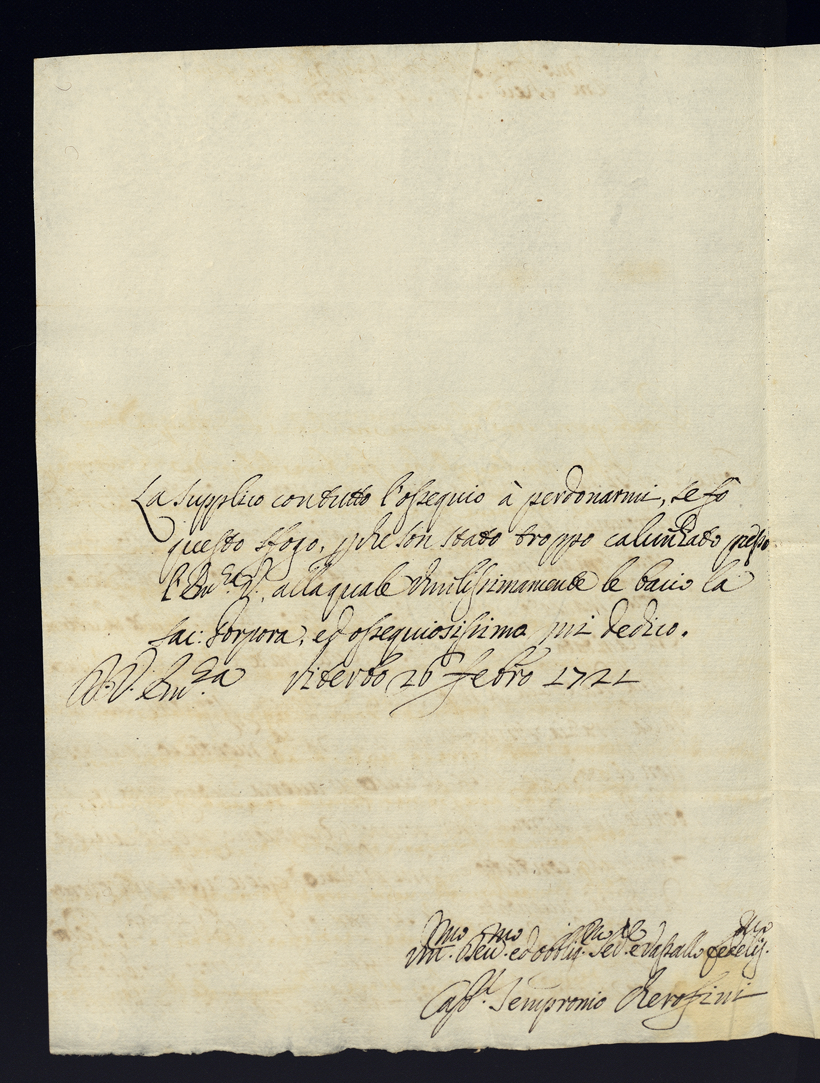 La supplico con tutto l'ossequio à perdonarmi, se fo
questo sfogo, p che son stato troppo calunniato presso
l'Em.za V., alla quale Umilissimamente le bacio la
sac: Porpora, ed ossequiosissimo mi dedico.
D. V. Em.za Viterbo 26 Febro 1721
Um.mo Dev.mo ed obbli.mo Ser.e e Vassallo fedelis.mo
Cap.n Sempronio